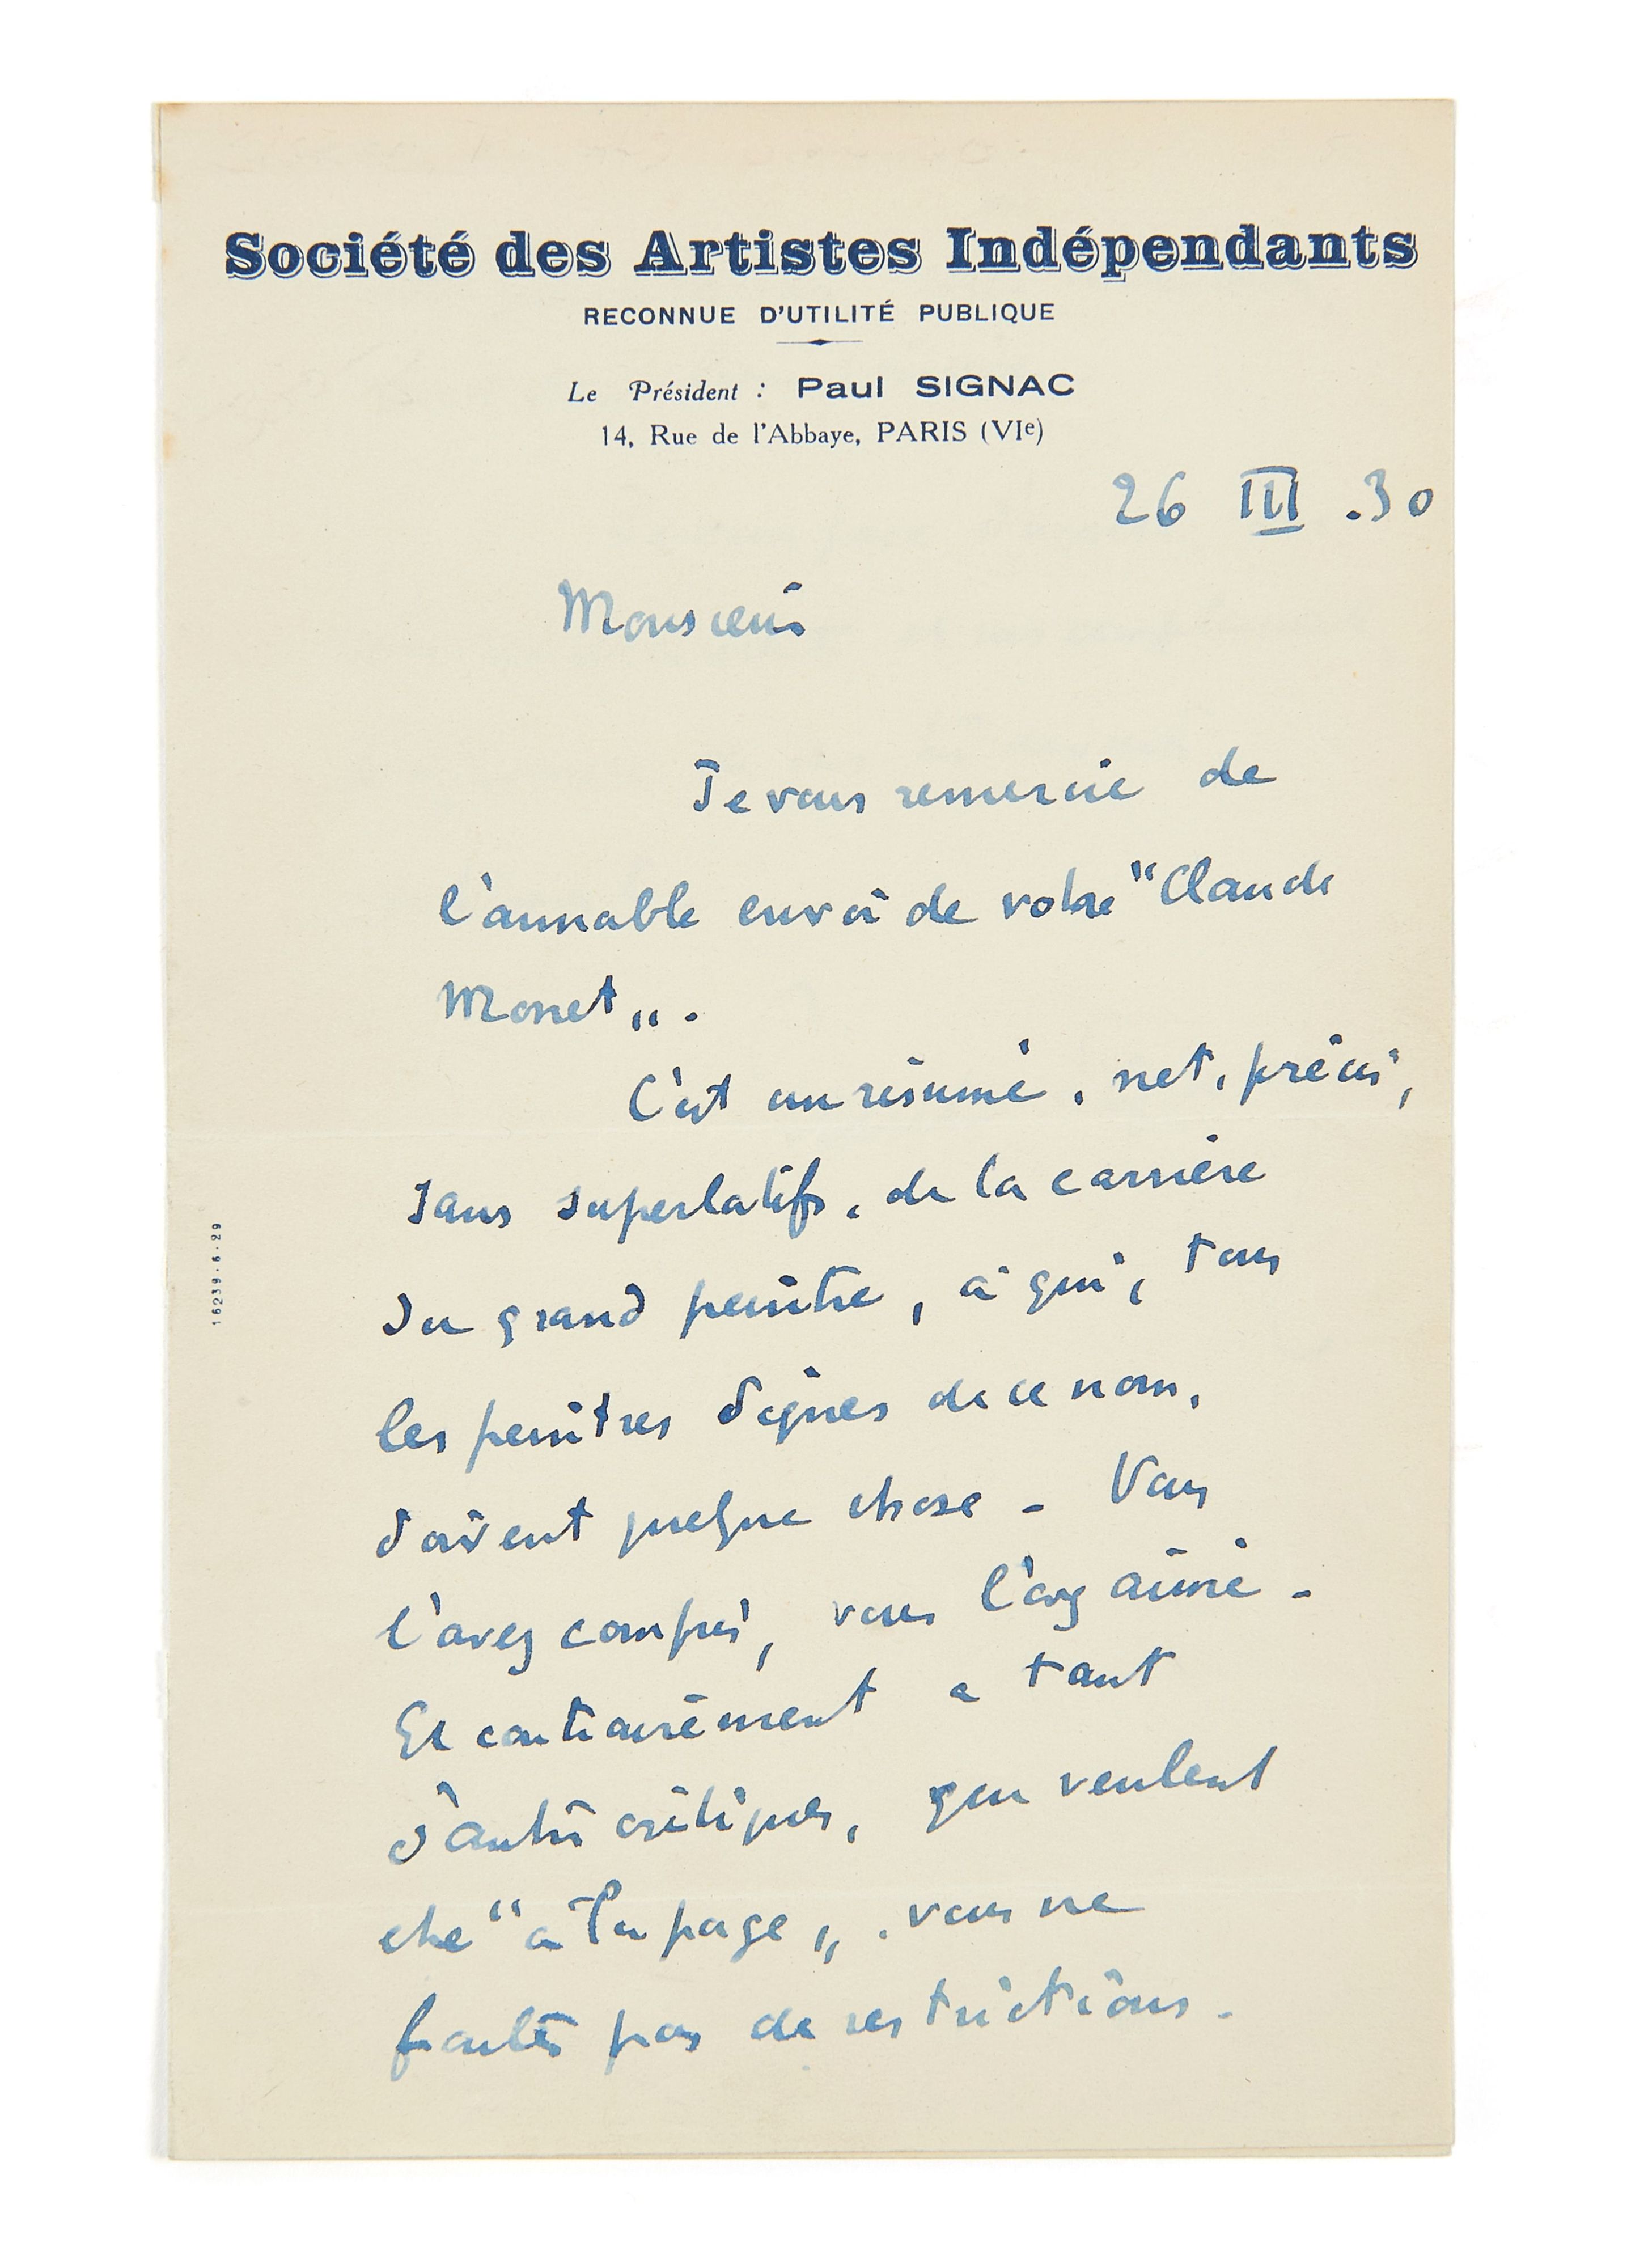 Société des Artistes Indépendants
RECONNUE D'UTILITÉ PUBLIQUE
Le Président : Paul SIGNAC
14, Rue de l'Abbaye, PARIS (VIe)
26 III .30
Monsieur
Je vous remercie de
l'aimable envoi de votre "Claude
Monet„.
C'est un résumé, net, précis,
sans superlatifs, de la carrière
du grand peintre, à qui, tous
les peintres dignes de ce nom,
doivent quelque chose - Vous
l'avez compris, vous l'avez aimé -
Et contrairement a tant
d'autres critiques, qui veulent
etre "à la page„, vous ne
faites pas de restrictions -
16239-6-29